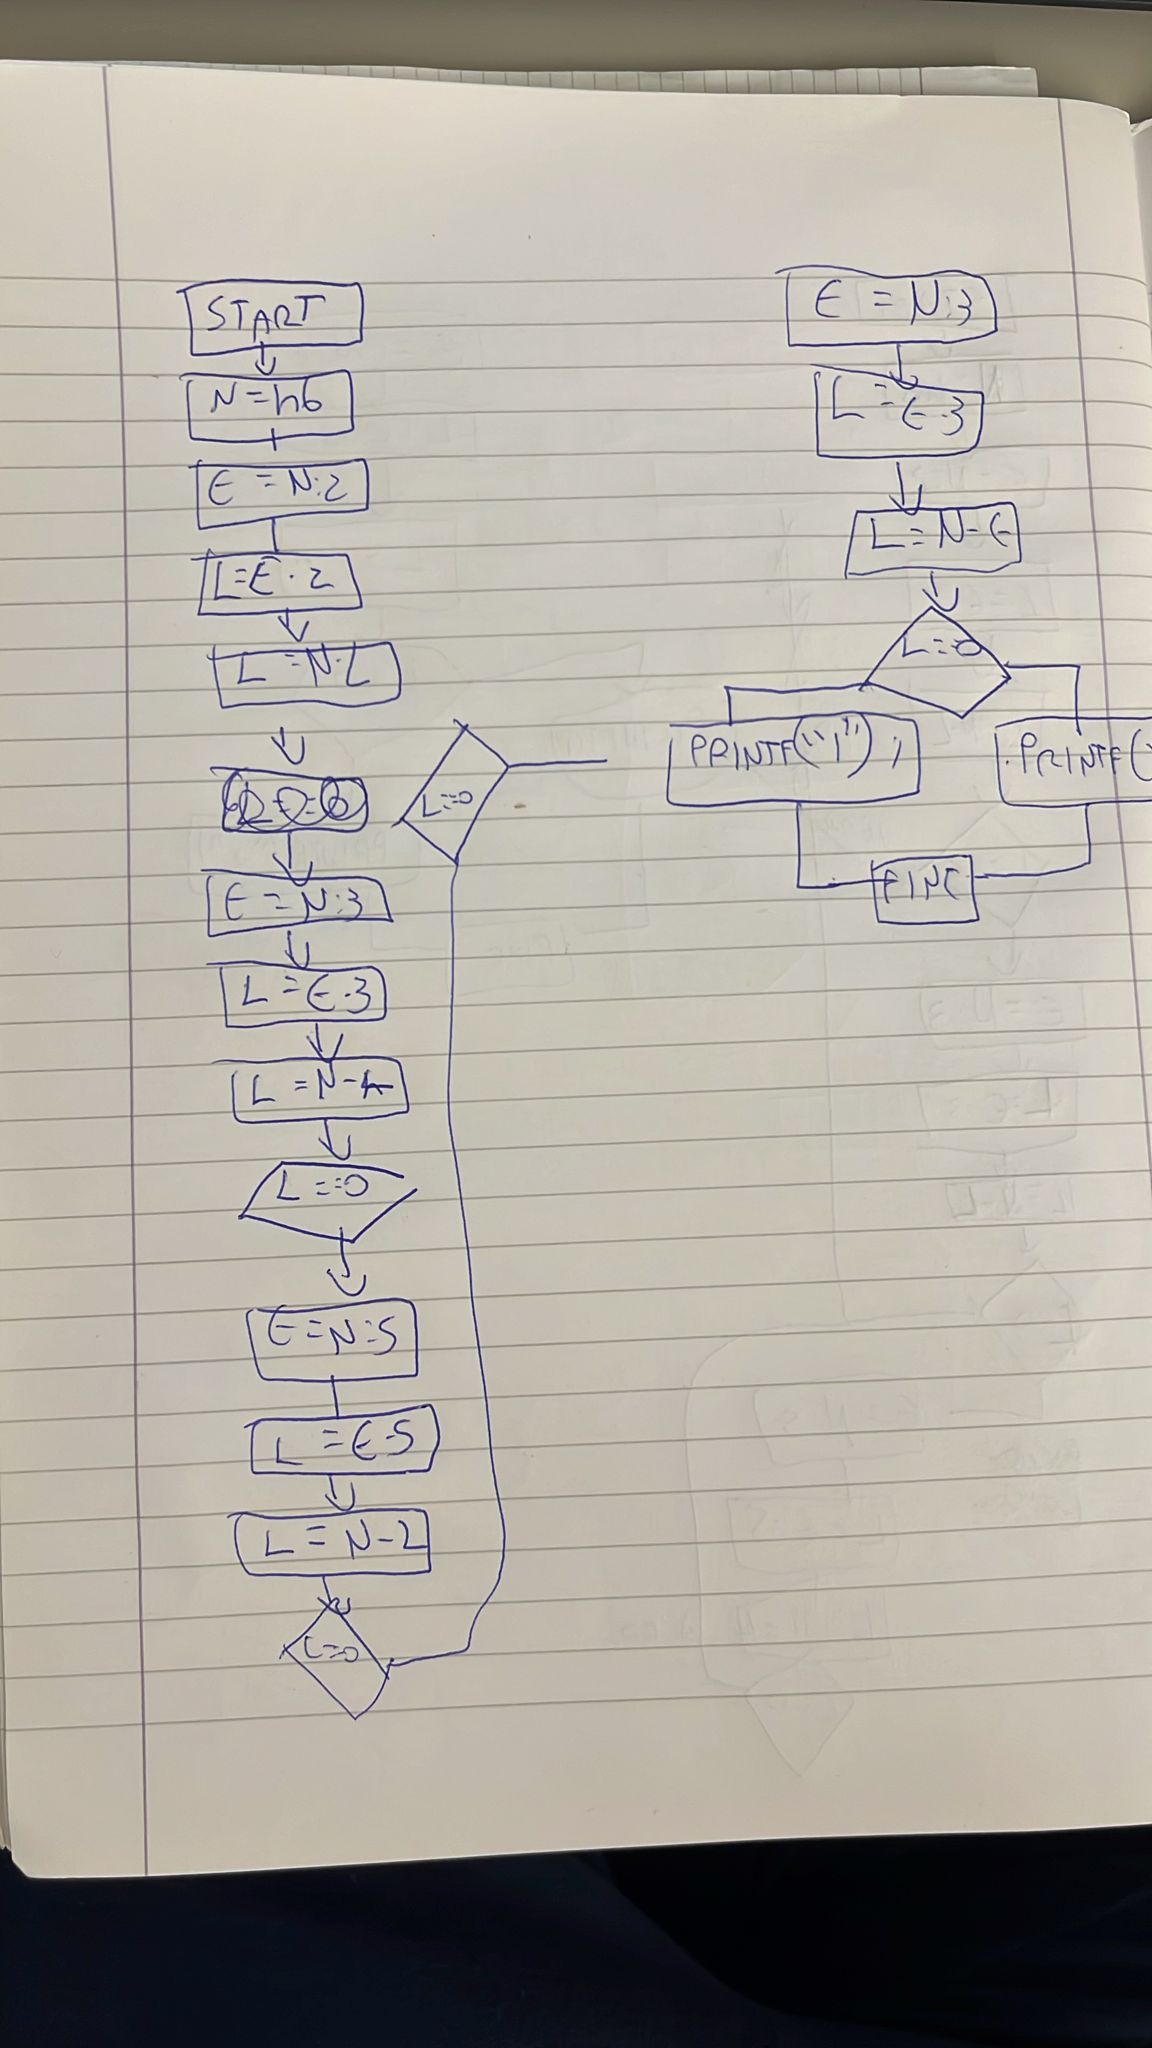 START
N = h6
E = N:2
L=E·2
L = N-L
E = N:3
L = E·3
L = N-
L ==0
E=N:5
L = E·5
L = N-2
L=0
L==0
E = N:3
L = E·3
L = N-E
L=0
PRINTF("1");
PRINTF(
FINE